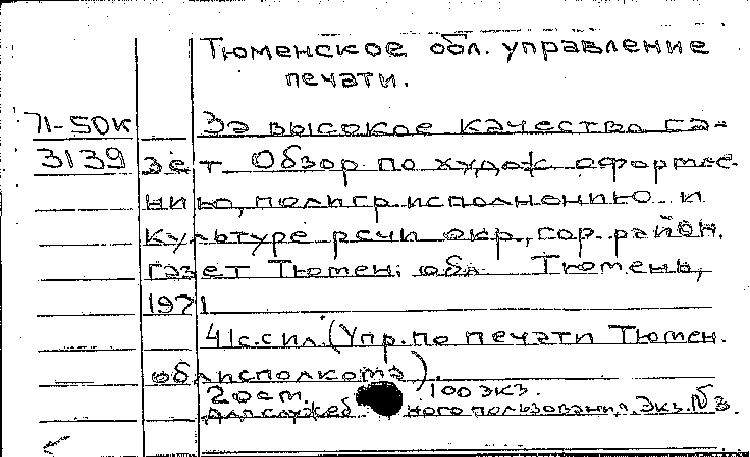 Тюменское обл. управление
печати.
71-50к За высокое качество га-
3139 зет. Обзор по худож. оформле-
нию, полигр. исполнению и
культуре речи окр., гор. район.
газет Тюмен. обл. Тюмень,
1971
41с. с ил. (Упр. по печати Тюмен.
облисполкома).
20 ст. 100 экз.
Для служебного пользования. Экз. №3.